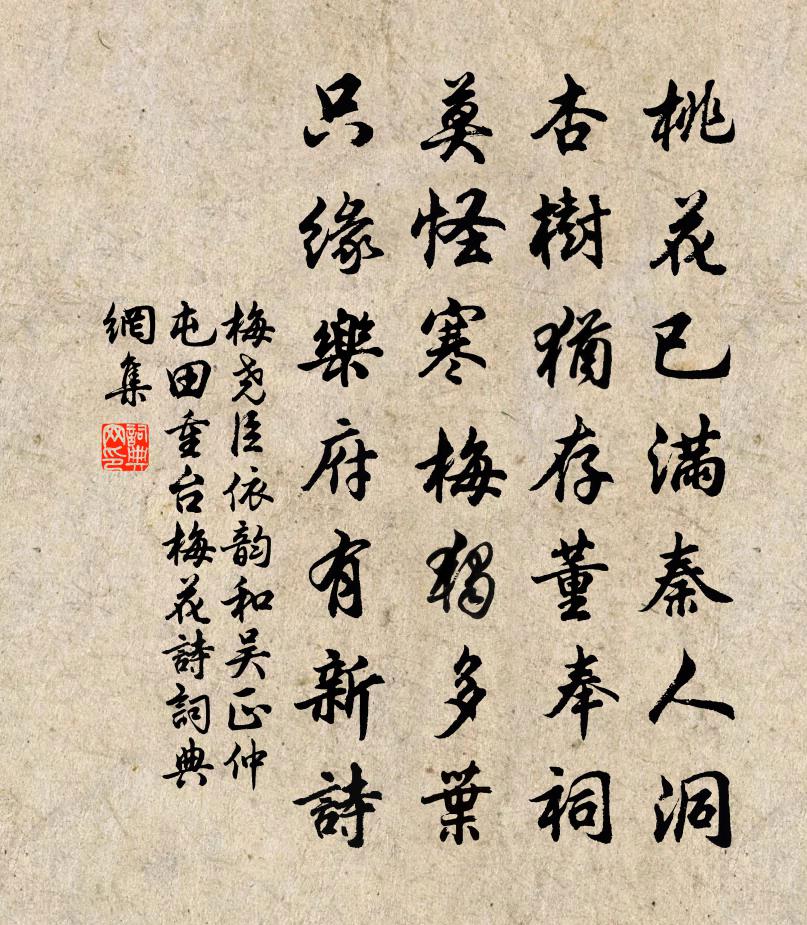 桃花已滿秦人洞
杏樹猶存董奉祠
莫怪寒梅獨多葉
只緣樂府有新詩
梅堯臣依韵和吴正仲
屯田重台梅花詩詞典
網集
詞典
网印